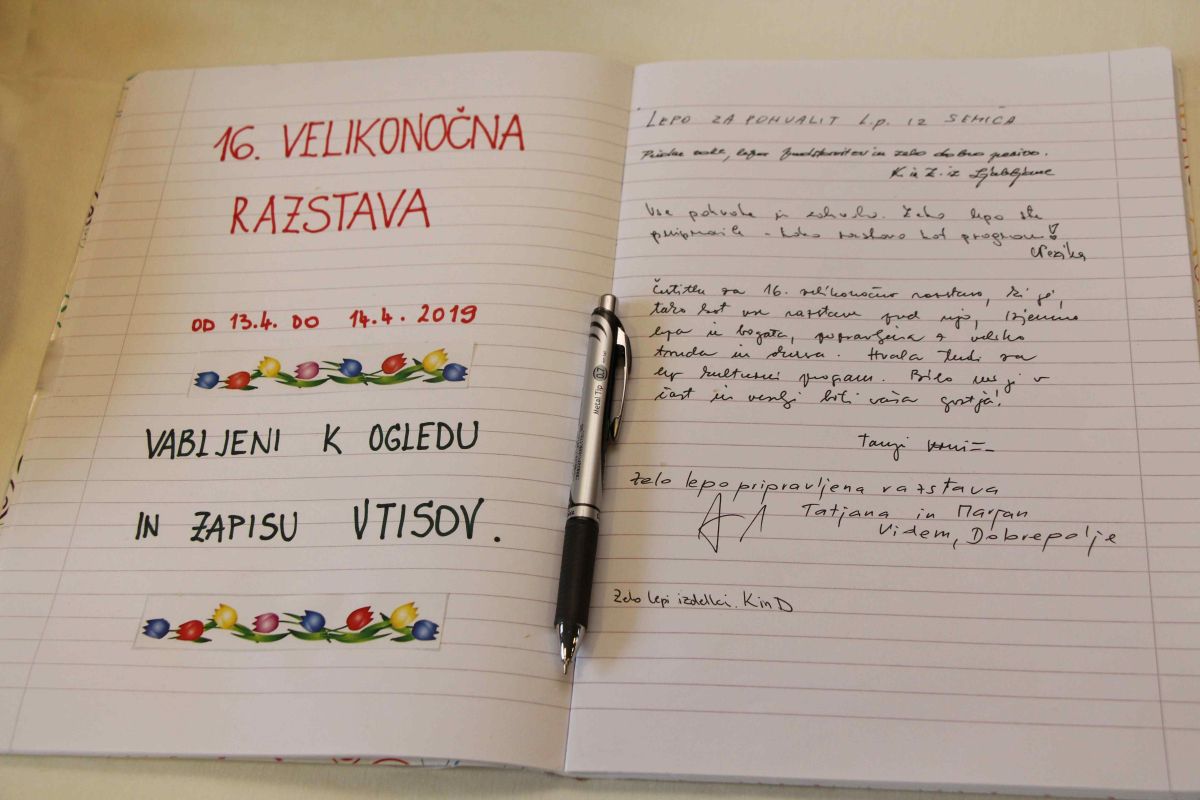 16. VELIKONOČNA
RAZSTAVA
OD 13.4. DO 14.4. 2019
VABLJENI K OGLEDU
IN ZAPISU VTISOV.
Metal Tip 0.7
LEPO ZA POHVALIT L.p. IZ SEMIČA
in zelo dobro pecivo.
K in Z. iz Ljubljane
Vse pohvale in zahvale. Zelo lepo ste
pripravili - tako razstavo kot program!
Rezika
Čestitke za 16. velikonočno razstavo, ki je,
tako kot vse razstave pred njo, izjemno
lepa in bogata, pripravljena z veliko
truda in dela. Hvala tudi za
lep kulturni program. Bilo mi je v
čast in veselje biti vaša gostja!
Zelo lepo pripravljena razstava
Tatjana in Marjan
Videm, Dobrepolje
Zelo lepi izdelki. K in D